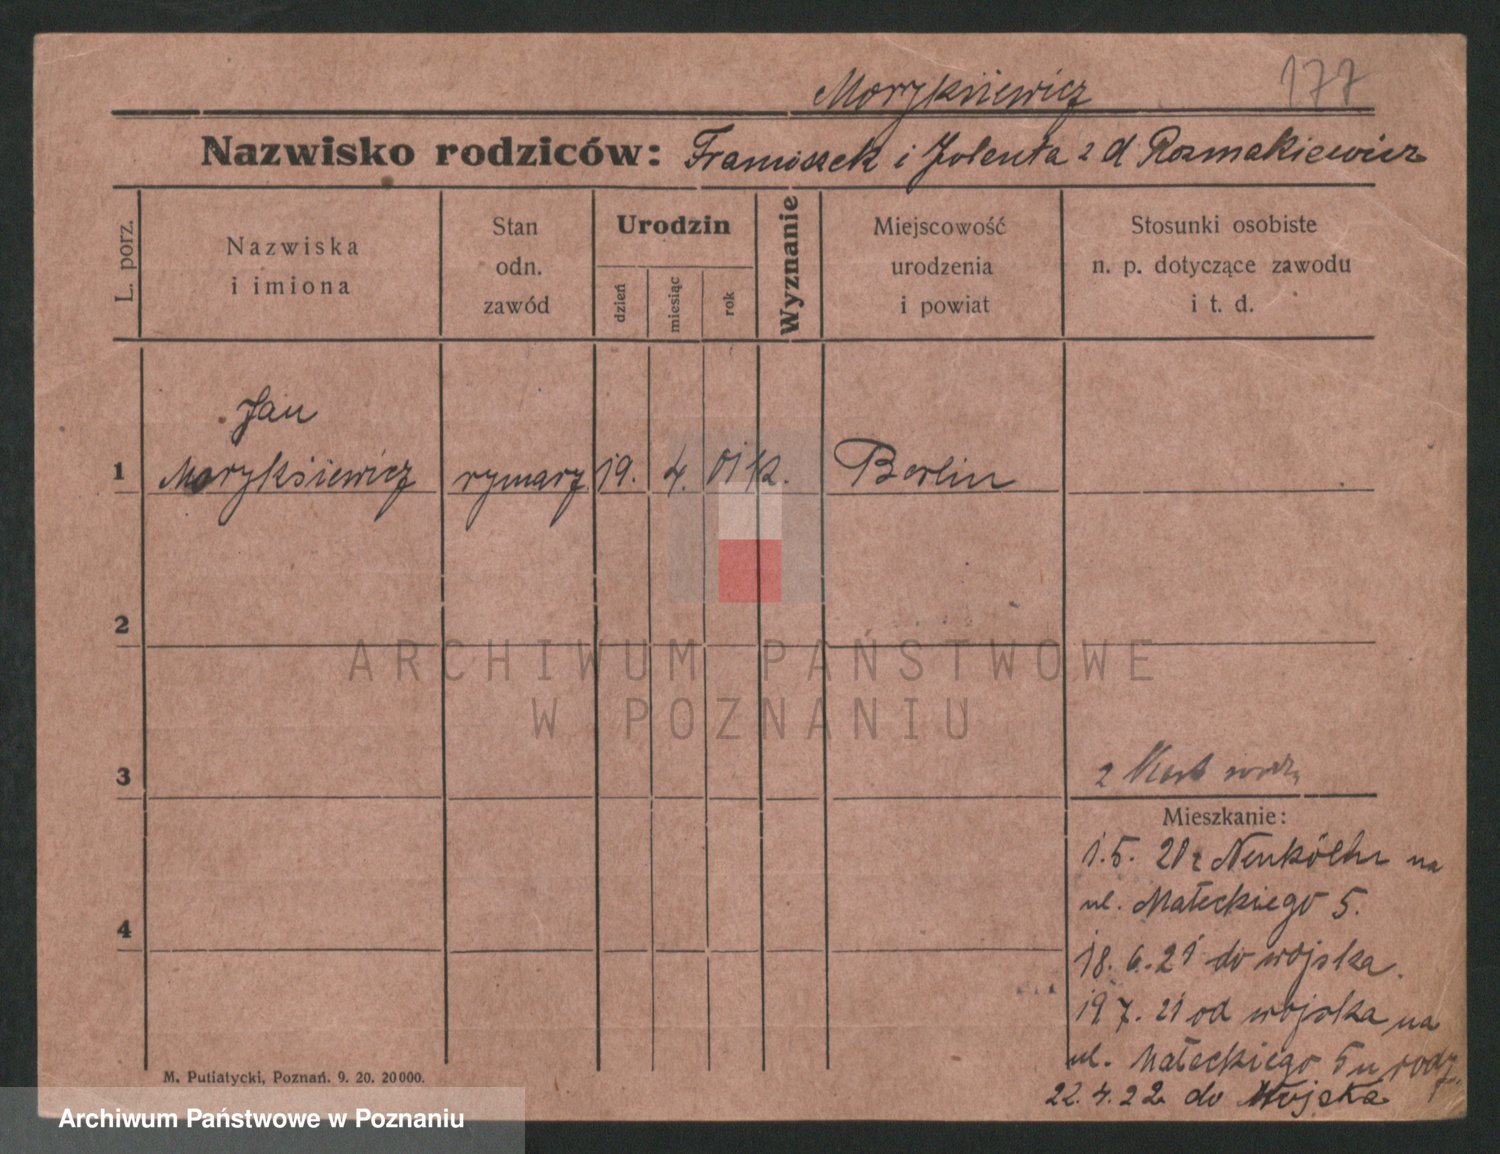 177
Moryksiewicz
Nazwisko rodziców: Franciszek i Jolenta z d Rozmakiewicz
L. porz.
Nazwiska
i imiona
Stan
odn.
zawód
Urodzin
dzień
miesiąc
rok
Wyznanie
Miejscowość
urodzenia
i powiat
Stosunki osobiste
n. p. dotyczące zawodu
i t. d.
Jan
1 Moryksiewicz rymarz 19. 4. 01 k. Berlin
2
ARCHIWUM PAŃSTWOWE
W POZNANIU
3
z Kart rodz.
Mieszkanie:
1.5. 21 z Neukölln na
ul. Małeckiego 5.
4
18. 6. 21 do wojska.
19 7. 21 od wojska na
ul. Małeckiego 5 u rodz.
22. 4. 22 do Wojska
M. Putiatycki, Poznań. 9. 20. 20000.
Archiwum Państwowe w Poznaniu